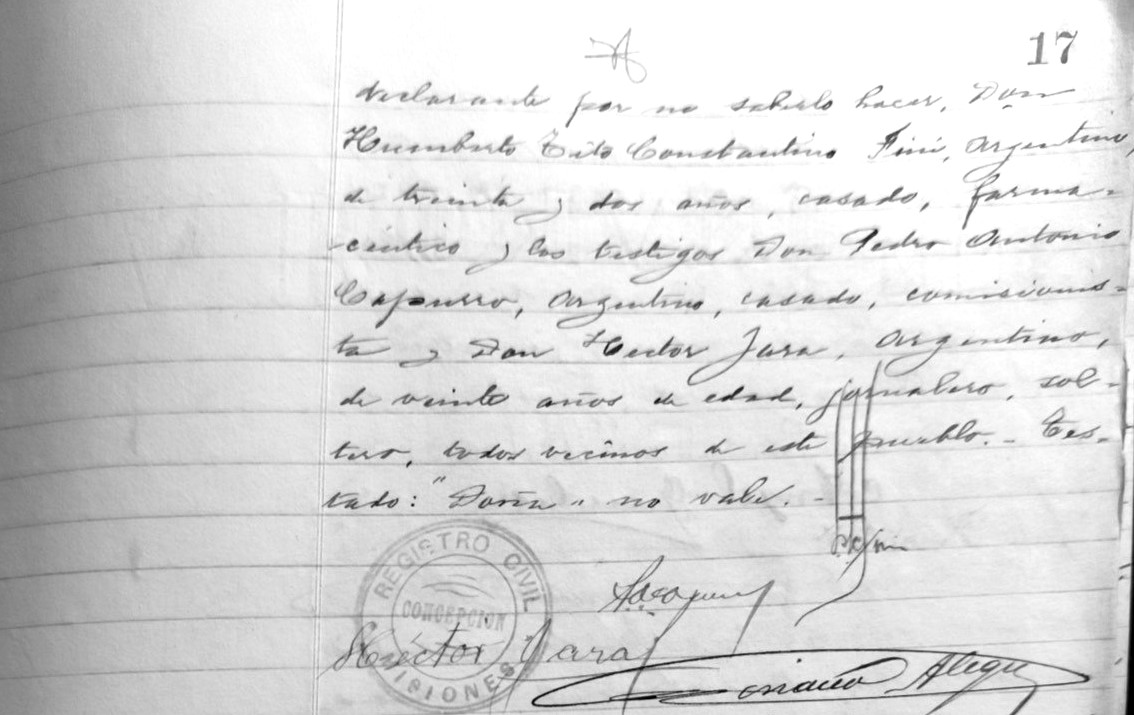 17
declarante por no saberlo hacer, Don
Humberto Tito Constantino Fini, Argentino,
de treinta y dos años, casado, farma-
céutico y los testigos Don Pedro Antonio
Capurro, Argentino, casado, comisionis-
ta y Don Hector Jara, Argentino,
de veinte años de edad, jornalero, sol-
tero, todos vecinos de este pueblo. - Tes-
tado: "Doña" no vale. -
REGISTRO CIVIL
CONCEPCION
Héctor Jara
Alegre